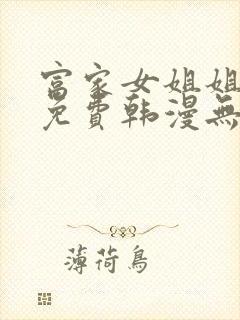 富家女姐姐
免費韩漫無
薄荷鳥